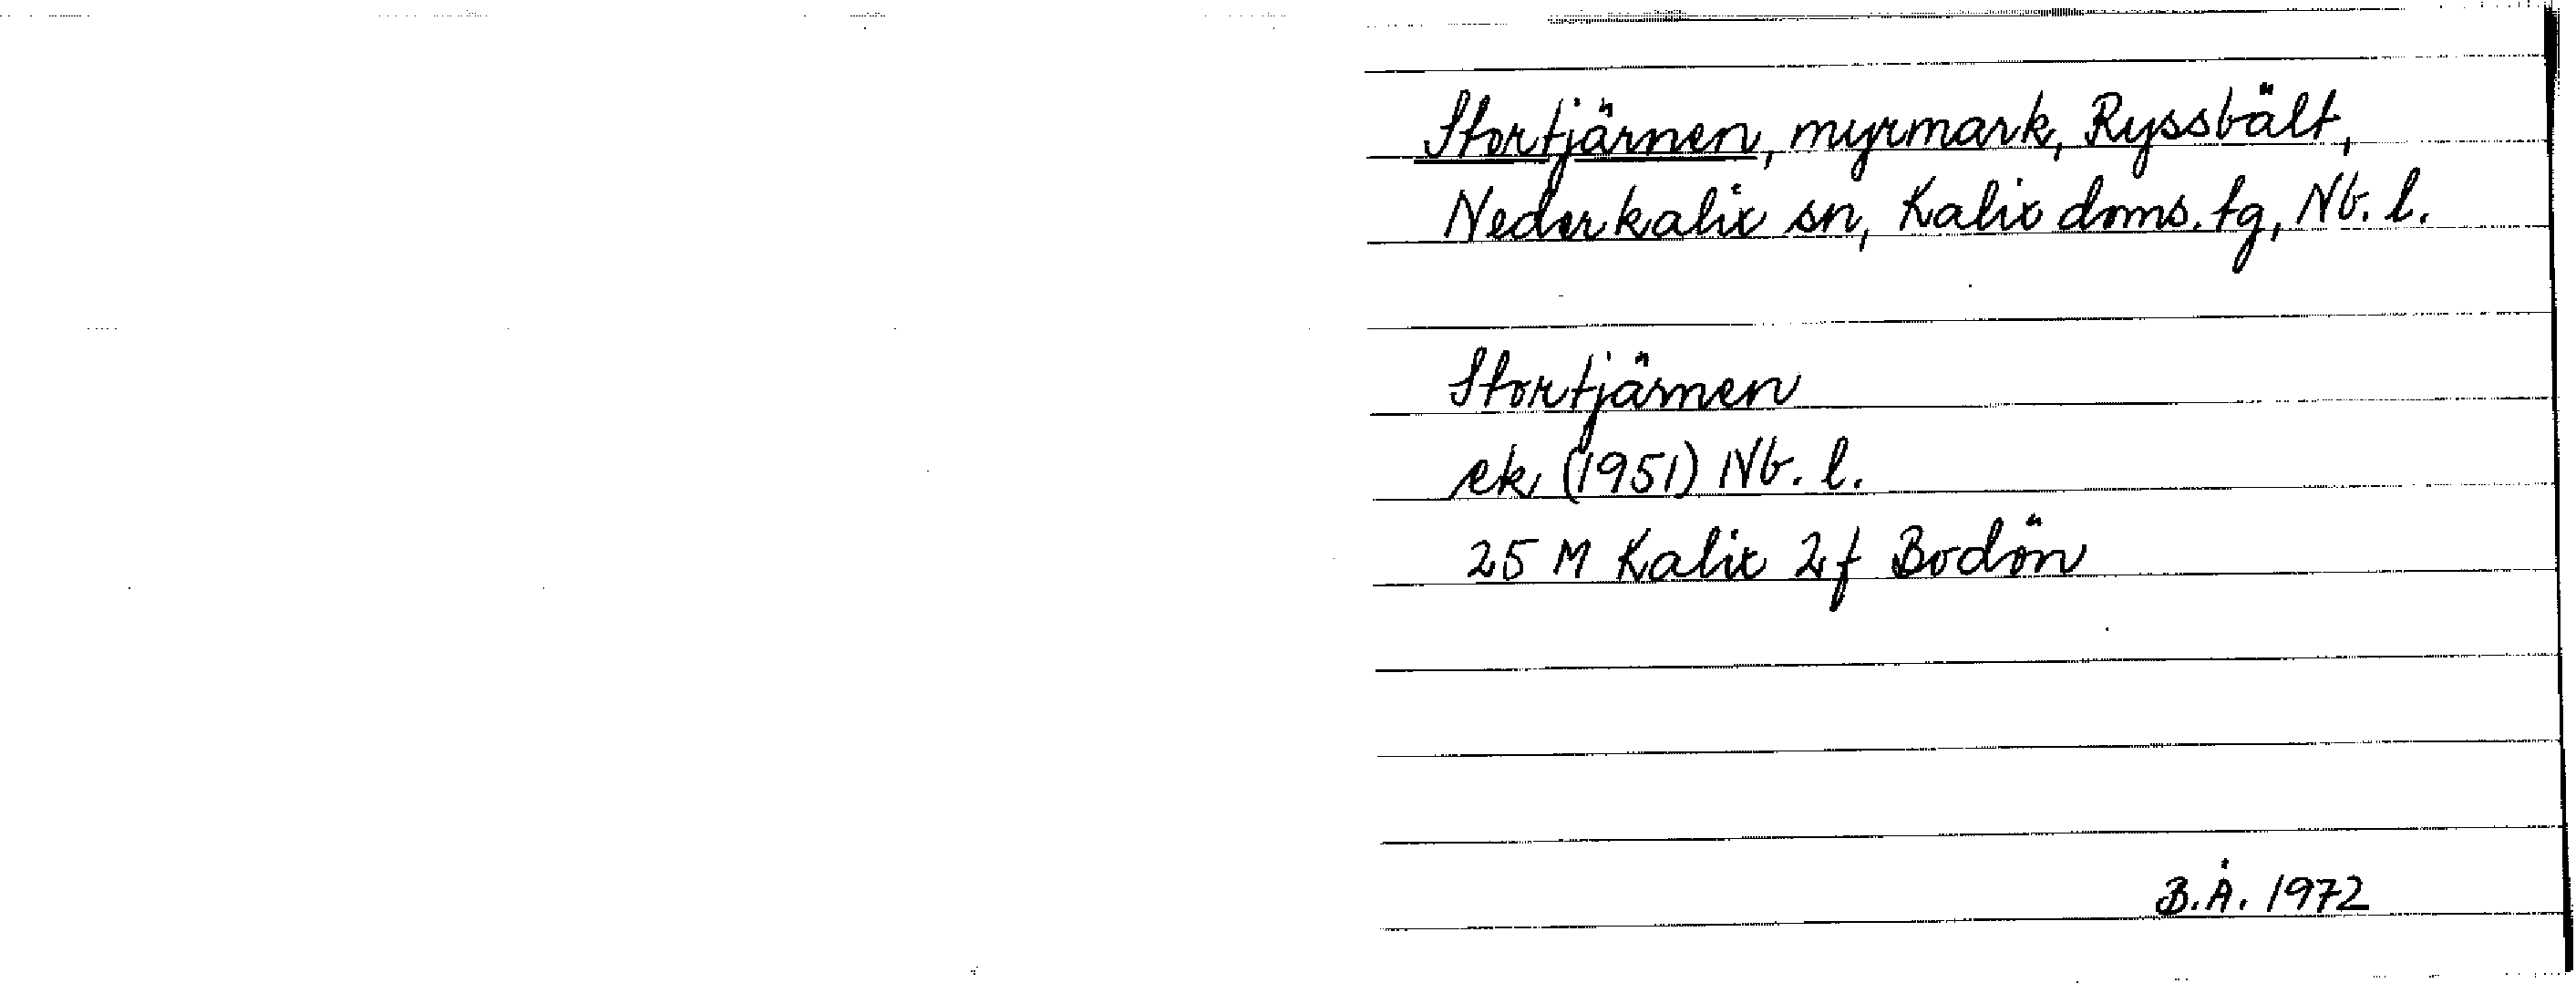 Stortjärnen, myrmark, Ryssbält,
Nederkalix sn, Kalix doms. tg, Nb. l.
Stortjärnen
ek (1951) Nb. l.
25 M Kalix 2f Bodön
B.Å. 1972